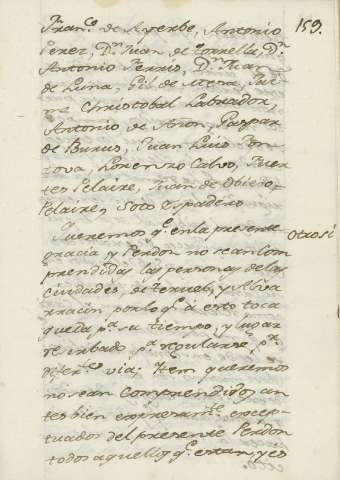 Fran.co de Ayerbe, Antonio
159.
Perez, D.n Juan de Torrella, D.n
Antonio Ferriz, D.n Juan
de Luna, Gil de Mesa,
Christobal Labrador,
Antonio de Anon, Gaspar
de Burus, Juan Luis
Lorenzo Calvo, Fuer-
tes Pelaire, Juan de
Pelaire, Soto espadero
Queremos q.e en la presente
Otrosi
gracia y Perdon no sean com
prendidas las personas de las
ciudades, de Teruel, y Alba-
rracin por lo q.e â esto toca
queda p.a su tiempo, y lugar
p.r
via; Item queremos
no sean comprendidos, an
tes bien expresam.te excep-
tuados del presente Perdon
todos aquellos q.e estan, y es